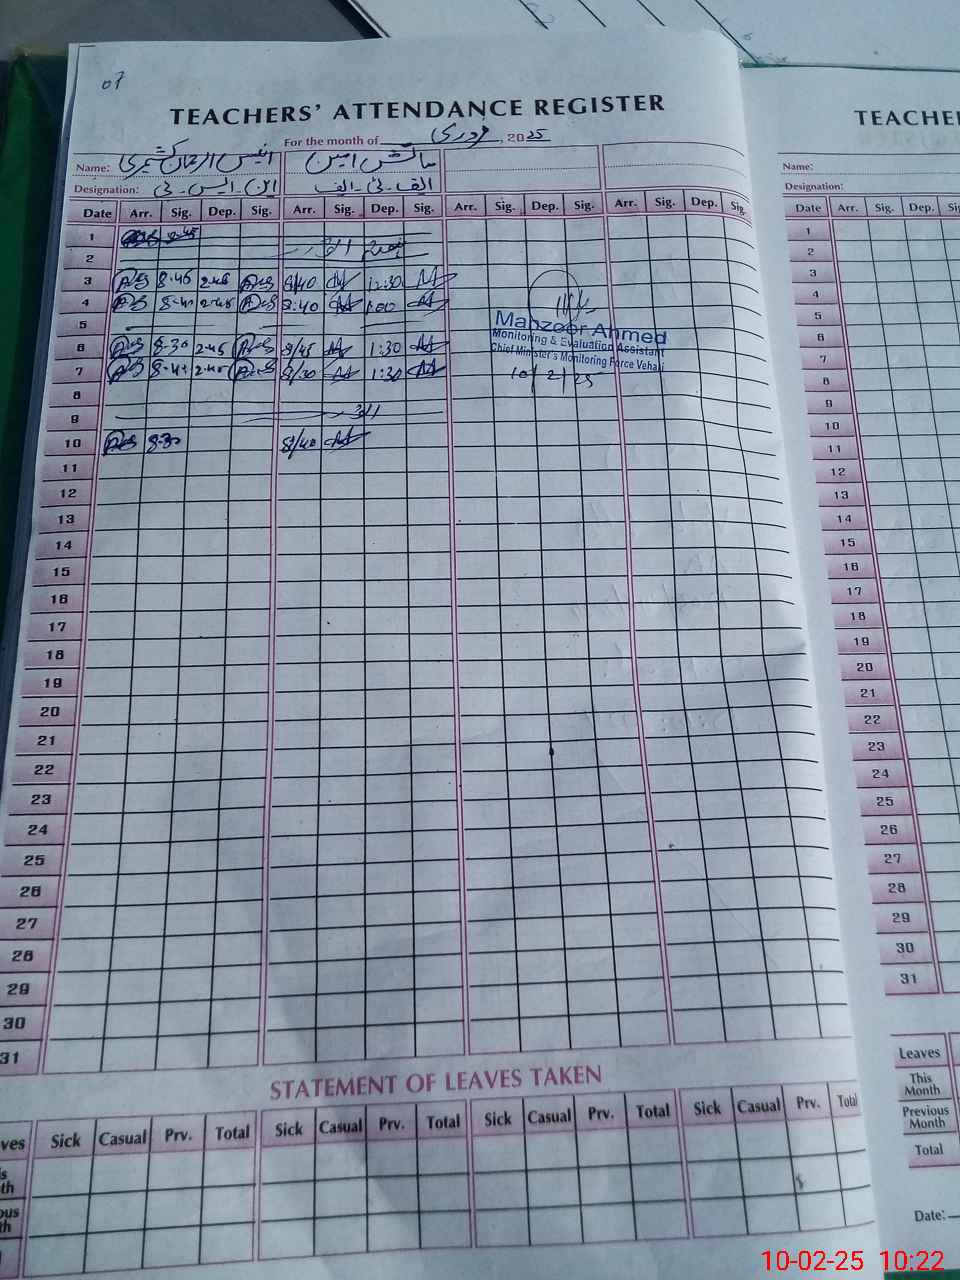 07
TEACHERS' ATTENDANCE REGISTER
For the month of فروری, 2025
Name: انیس الرحمان سائش امین
Designation: این۔ایس۔بی ایف۔ٹی۔الف
Date Arr. Sig. Dep. Sig. Arr. Sig. Dep. Sig. Arr. Sig. Dep. Sig. Arr. Sig. Dep. Sig.
1 8-45
2 اتوار
3 8-45 2-45 8/40 12:30
4 8-40 2-45 8:40 1:00
5
6 8-30 2-45 8/45 1:30
7 8-45 2-45 8/30 1:30
8
9 اتوار
10 8-30 8/40
11
12
13
14
15
16
17
18
19
20
21
22
23
24
25
26
27
28
29
30
31
Manzoor Ahmed
Monitoring & Evaluation Assistant
Chief Minister's Monitoring Force Vehari
10/2/25
STATEMENT OF LEAVES TAKEN
ves Sick Casual Prv. Total Sick Casual Prv. Total Sick Casual Prv. Total Sick Casual Prv. Total
is
th
ous
th
TEACHE
Name:
Designation:
Date Arr. Sig. Dep. Si
1
2
3
4
5
6
7
8
9
10
11
12
13
14
15
16
17
18
19
20
21
22
23
24
25
26
27
28
29
30
31
Leaves
This
Month
Previous
Month
Total
Date:
10-02-25 10:22